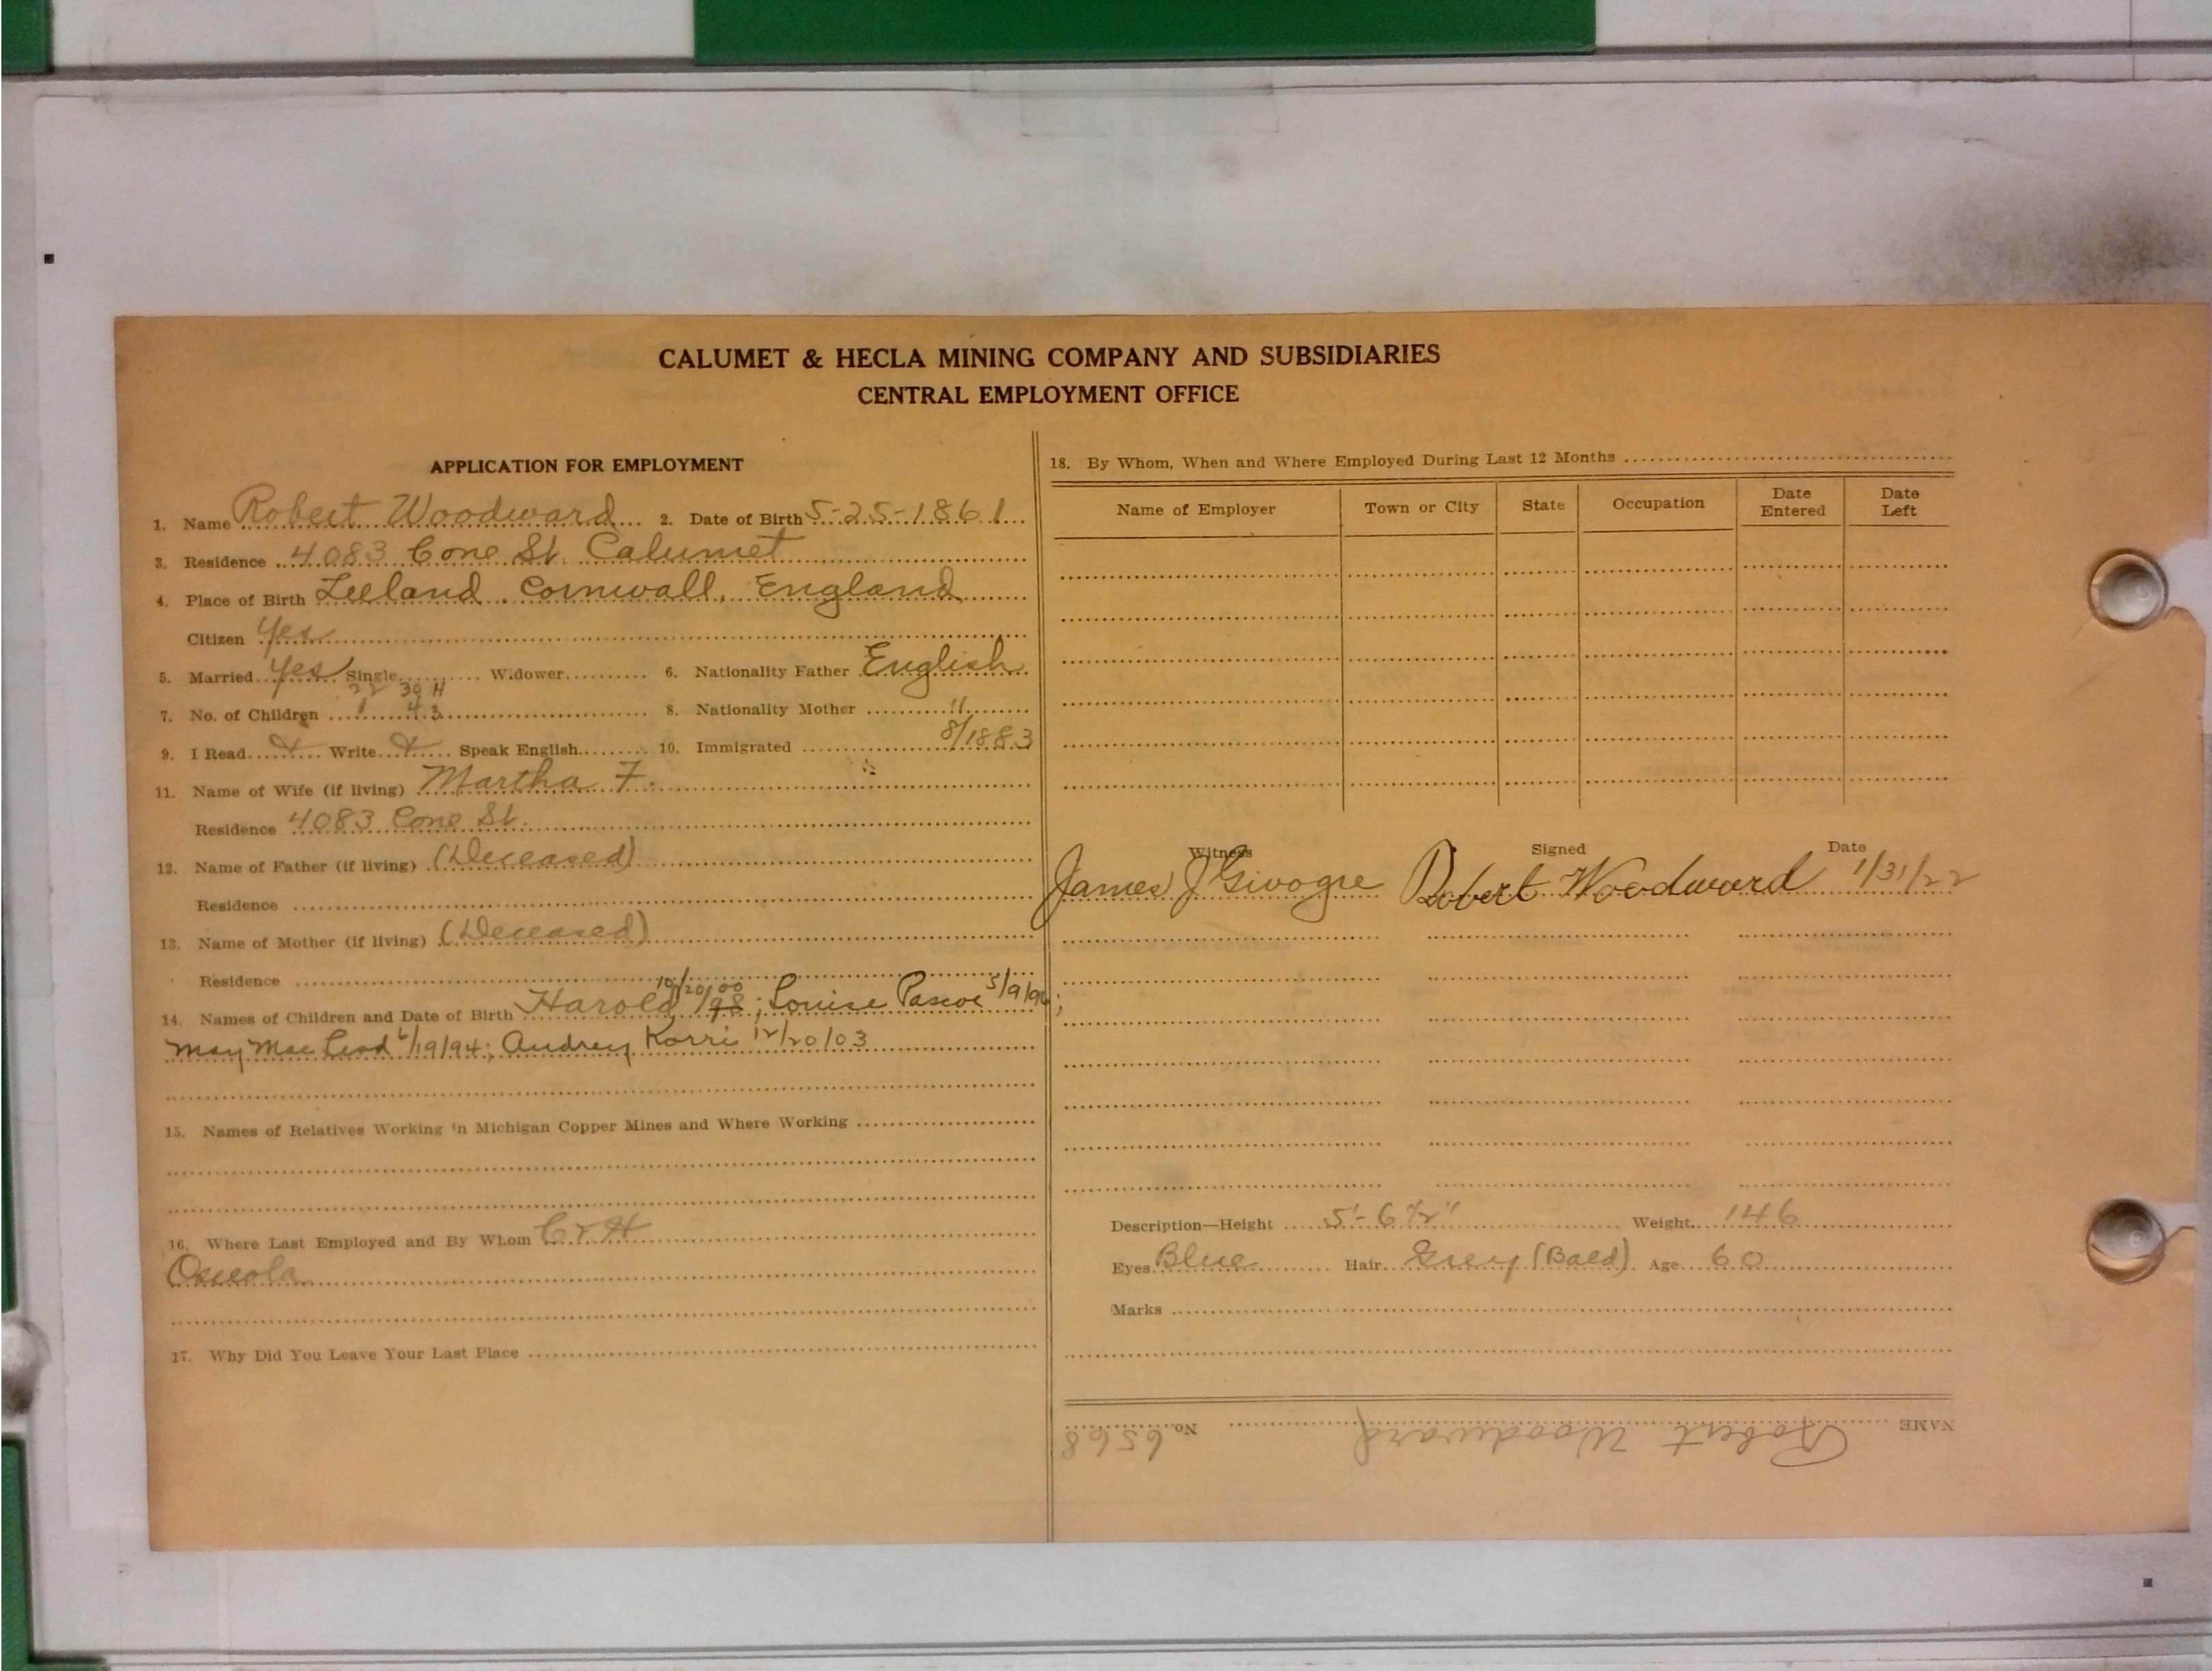 CALUMET & HECLA MINING COMPANY AND SUBSIDIARIES
CENTRAL EMPLOYMENT OFFICE
APPLICATION FOR EMPLOYMENT
1. Name Robert Woodward 2. Date of Birth 5-25-1861
3. Residence 4083 Cone St. Calumet
4. Place of Birth Leeland, Cornwall, England
Citizen Yes
5. Married Yes Single Widower 6. Nationality Father English
22 39 H
7. No. of Children 1 43 8. Nationality Mother "
9. I Read Write Speak English 10. Immigrated 8/1883
11. Name of Wife (if living) Martha F.
Residence 4083 Cone St.
12. Name of Father (if living) (Deceased)
Residence
13. Name of Mother (if living) (Deceased)
Residence
10/20/00
14. Names of Children and Date of Birth Harold 98; Louise Pascoe 5/9/96;
May Mac Leod 6/19/94; Audrey Korri 12/20/03
15. Names of Relatives Working in Michigan Copper Mines and Where Working
16. Where Last Employed and By Whom C & H
Osceola
17. Why Did You Leave Your Last Place
18. By Whom, When and Where Employed During Last 12 Months
Name of Employer Town or City State Occupation Date Entered Date Left
Witness Signed Date
James J Givogre Robert Woodward 1/31/22
Description—Height 5'-6 1/2" Weight 146
Eyes Blue Hair Grey (Bald) Age 60
Marks
NAME Robert Woodward No. 6568